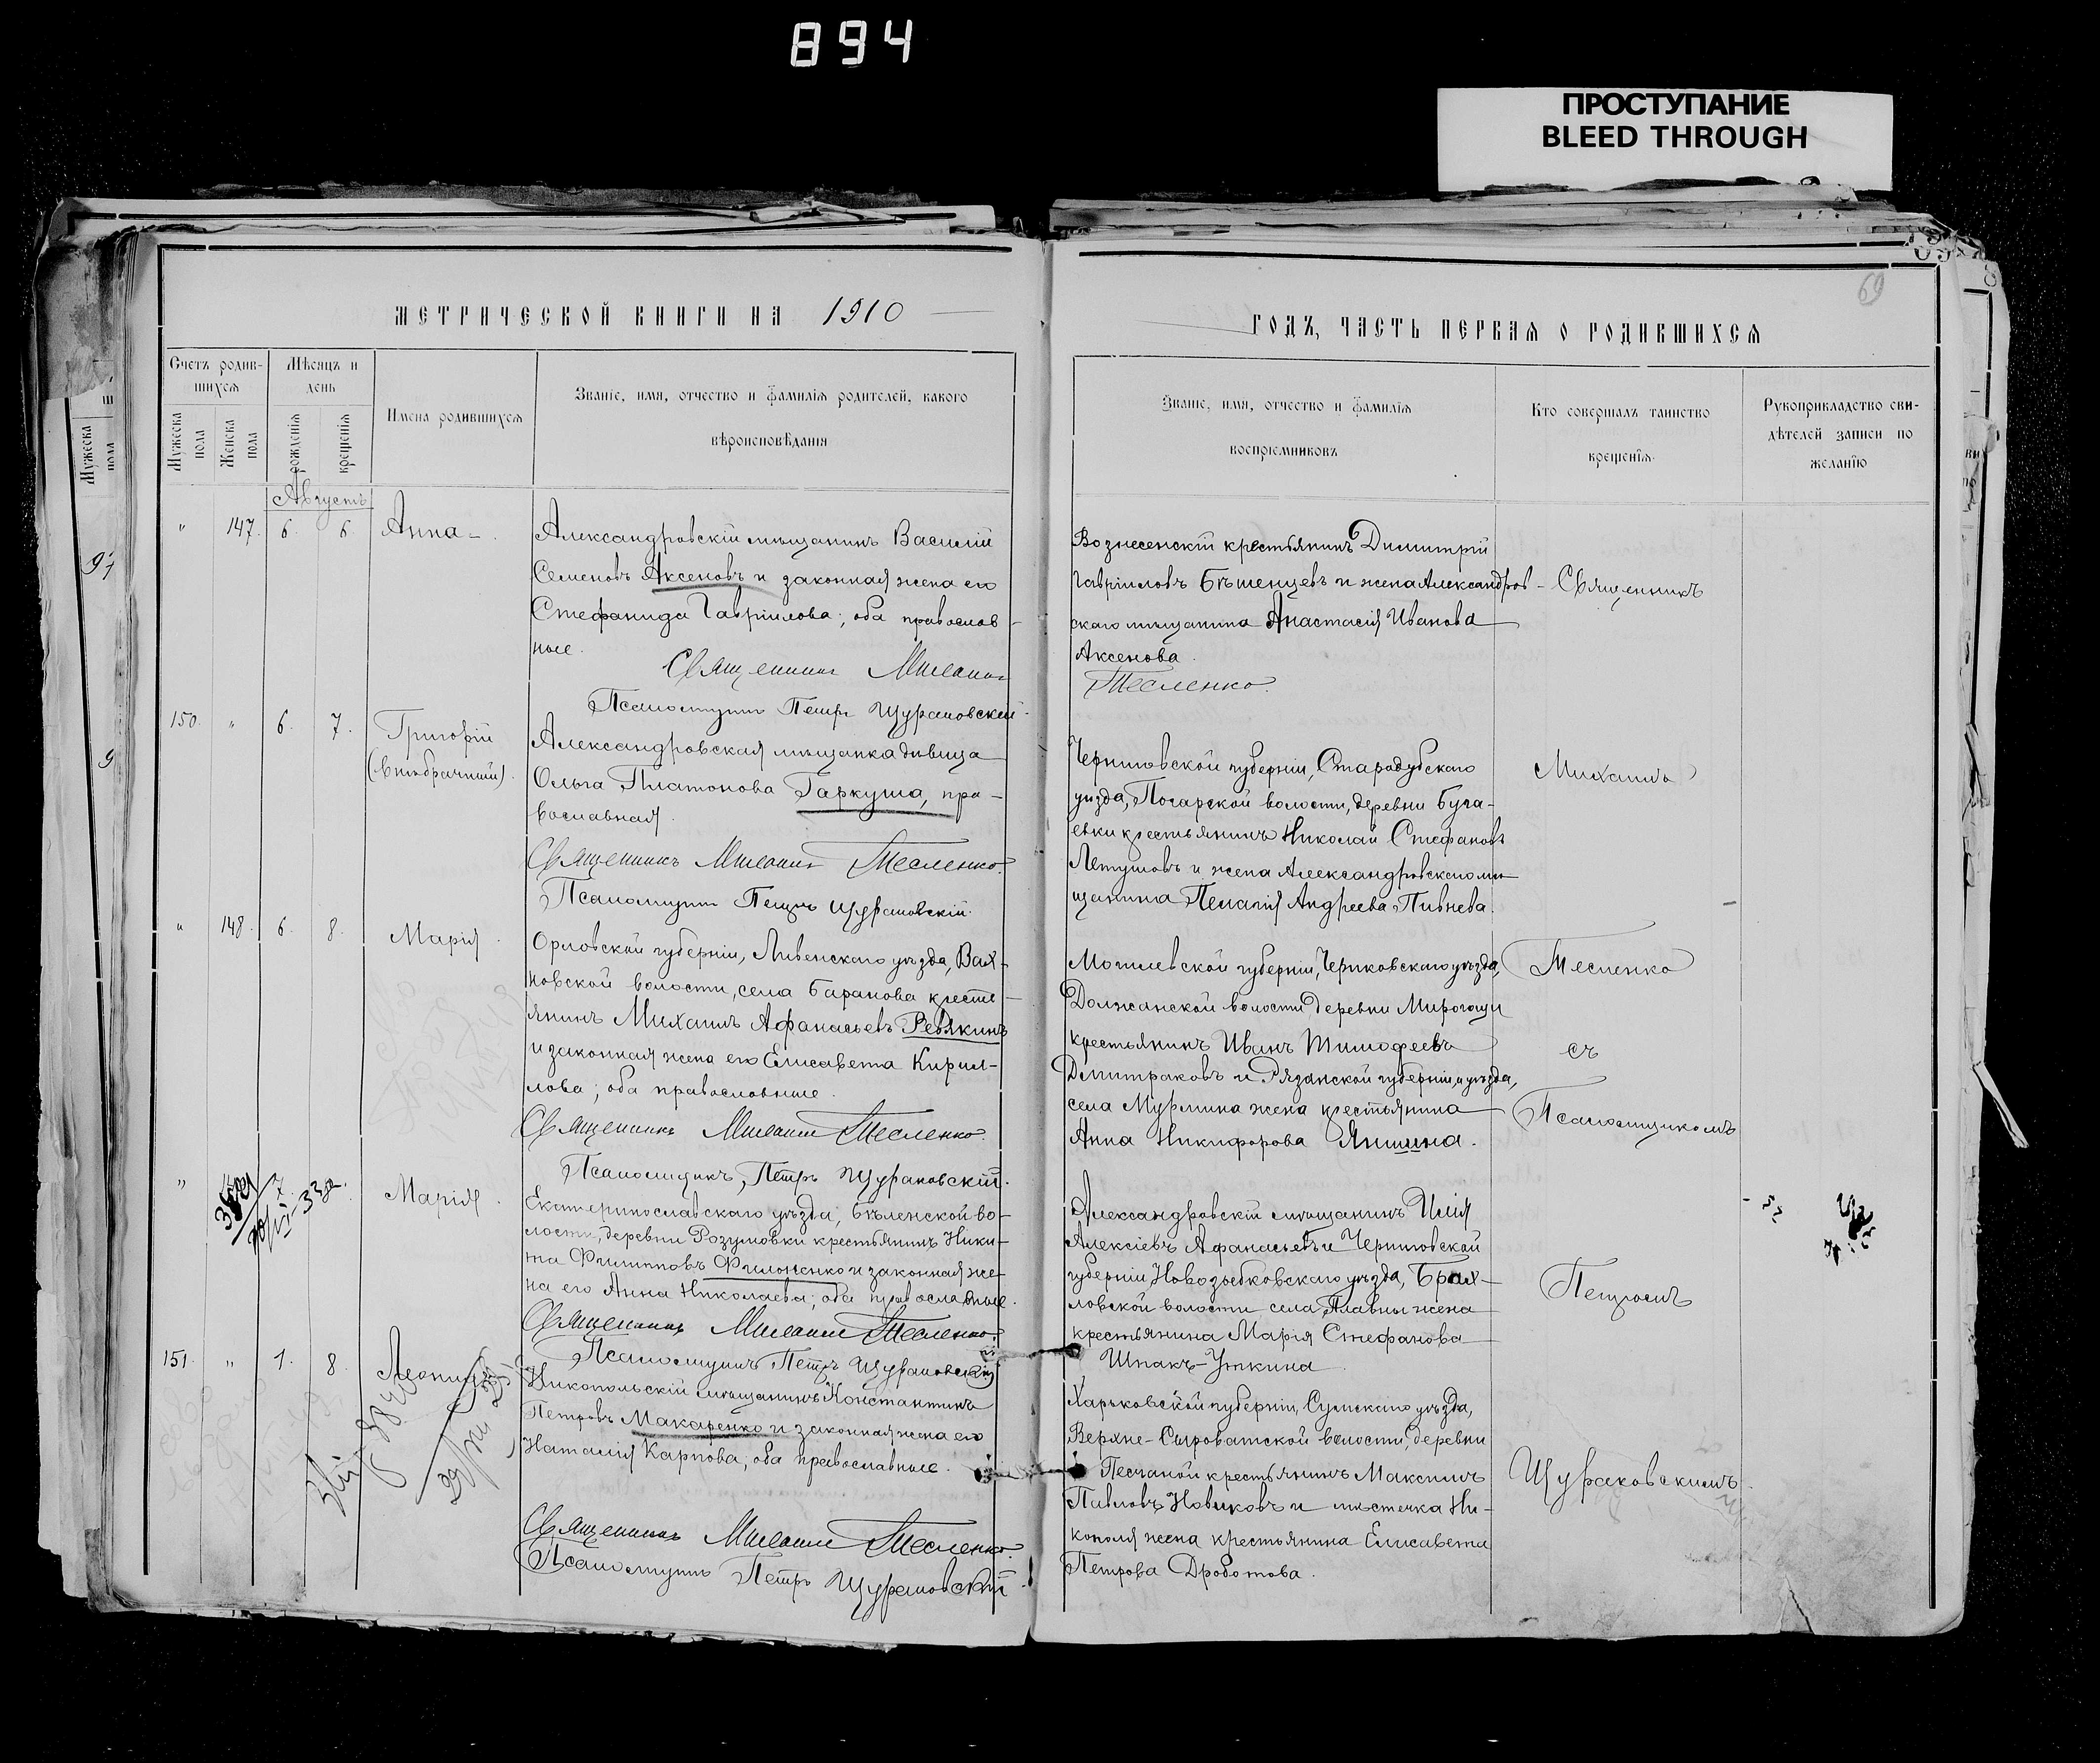 894
ПРОСТУПАНИЕ
BLEED THROUGH
69
МЕТРИЧЕСКОЙ КНИГИ НА 1910
Счетъ родив-
шихся
Мѣсяцъ и
день
Мужеска
пола
Женска
пола
рожденія
крещенія
Имена родившихся
Званіе, имя, отчество и фамилія родителей, какого
вѣроисповѣданія
Августъ
" 147. 6. 6. Анна
Александровскій мѣщанинъ Василій
Семеновъ Аксеновъ и законная жена его
Стефанида Гавріилова; оба православ-
ные.
Священникъ Михаилъ
Псаломщикъ Петръ Щураковскій.
150. " 6. 7. Григорій
(внѣбрачный).
Александровская мѣщанка дѣвица
Ольга Платонова Гаркуша, пра-
вославная.
Священникъ Михаилъ Тесленко.
Псаломщикъ Петръ Щураковскій.
" 148. 6. 8. Марія.
Орловской губерніи, Ливенскаго уѣзда, Вах-
новской волости, села Баранова кресть-
янинъ Михаилъ Афанасьевъ Ревякинъ
и законная жена его Елисавета Кирил-
лова; оба православные.
Священникъ Михаилъ Тесленко.
Псаломщикъ, Петръ Щураковскій.
" 7. Марія.
Екатеринославскаго уѣзда, Бѣленской во-
лости, деревни Розумовки крестьянинъ Ники-
та Филипповъ Филоненко и законная же-
на его Анна Николаева; оба православные.
Священникъ Михаилъ Тесленко.
Псаломщикъ Петръ Щураковскій
151. " 1. 8. Леонидъ
Никопольскій мѣщанинъ Константинъ
Петровъ Макаренко и законная жена его
Наталія Карпова, оба православные.
Священникъ Михаилъ Тесленко.
Псаломщикъ Петръ Щураковскій.
ГОДЪ, ЧАСТЬ ПЕРВАЯ О РОДИВШИХСЯ
Званіе, имя, отчество и фамилія
воспріемниковъ
Кто совершалъ таинство
крещенія.
Рукоприкладство сви-
дѣтелей записи по
желанію
Вознесенскій крестьянинъ Димитрій
Гавріиловъ Бѣшенцевъ и жена Александров-
скаго мѣщанина Анастасія Иванова
Аксенова.
Тесленко.
Черниговской губерніи, Стародубскаго
уѣзда, Погарской волости, деревни Буга-
евки крестьянинъ Николай Стефановъ
Лѣтушовъ и жена Александровскаго мѣ-
щанина Пелагія Андреева Пивнева.
Могилевской губерніи, Чериковскаго уѣзда,
Должанской волости деревни Мирогощи
крестьянинъ Иванъ Тимофеевъ
Дмитраковъ и Рязанской губерніи и уѣзда,
села Мурмина жена крестьянина
Анна Никифорова Яншина.
Александровскій мѣщанинъ Илія
Алексіевъ Афанасьевъ и Черниговской
губерніи Новозыбковскаго уѣзда, Брах-
ловской волости села, Плавны жена
крестьянина Марія Стефанова
Шпакъ-Уткина.
Харьковской губерніи, Сумскаго уѣзда,
Верхне-Сыроватской волости, деревни
Песчаной крестьянинъ Максимъ
Павловъ Новиковъ и мѣстечка Ни-
кополя жена крестьянина Елисавета
Петрова Дроботова.
Священникъ
Михаилъ
Тесленко
съ
Псаломщикомъ
Петромъ
Щураковскимъ.